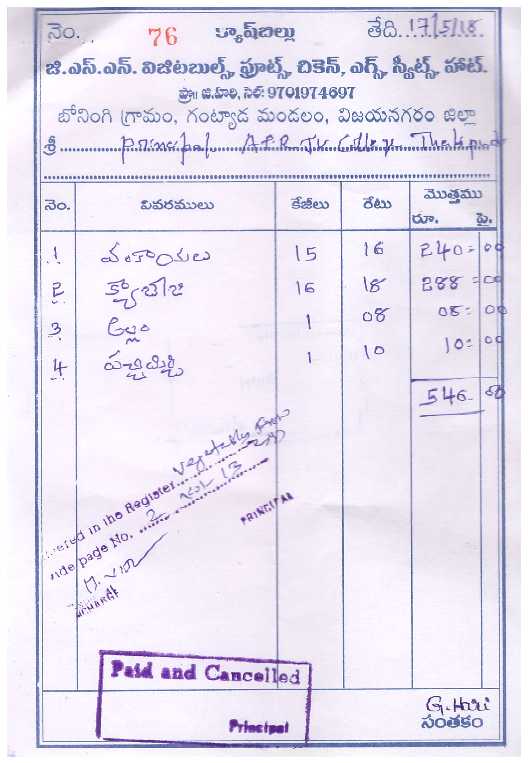 నెం. 76 క్యాష్‌బిల్లు తేది. 17/5/18.
జి.ఎస్.ఎన్. విజిటబుల్స్, ఫ్రూట్స్, చికెన్, ఎగ్స్, స్వీట్స్, హాట్.
ప్రొ॥ జి.హరి, సెల్: 9701974697
బోనంగి గ్రామం, గంట్యాడ మండలం, విజయనగరం జిల్లా
శ్రీ Principal APR Jr College
నెం. వివరములు కేజీలు రేటు మొత్తము
రూ. పై.
1 వంకాయలు 15 16 240=00
2 క్యాబేజి 16 18 288=00
3 అల్లం 1 08 08=00
4 పచ్చిమిర్చి 1 10 10=00
546-00
in the Register Vegetable
page No. 2 Vol 13
PRINCIPAL
Paid and Cancelled
Principal
G. Hari
సంతకం